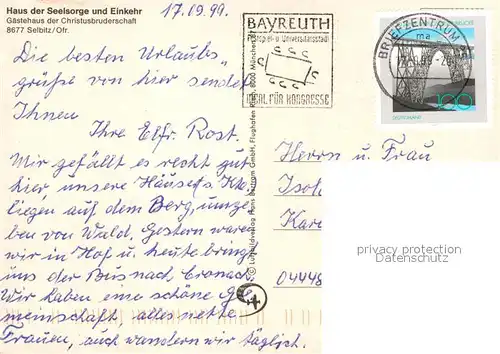 Haus der Seelsorge und Einkehr
Gästehaus der Christusbruderschaft
8677 Selbitz/Ofr.
17.09.99.
Die besten Urlaubs-
grüße von hier sendet
Ihnen
Ihre Elfr. Rost.
Mir gefällt es recht gut
hier, unsere Häuser
liegen auf dem Berg, umge-
ben von Wald. Gestern waren
wir in Hof u. heute bringt
uns der Bus nach Cronach.
Wir haben eine schöne Ge-
meinschaft, alles nette
Frauen, auch wandern wir täglich.
BAYREUTH
Festspiel- u. Universitätsstadt
IDEAL FÜR KONGRESSE
BRIEFZENTRUM
ma
100
DEUTSCHLAND
Herrn u. Frau
Kar
04448
privacy protection
Datenschutz